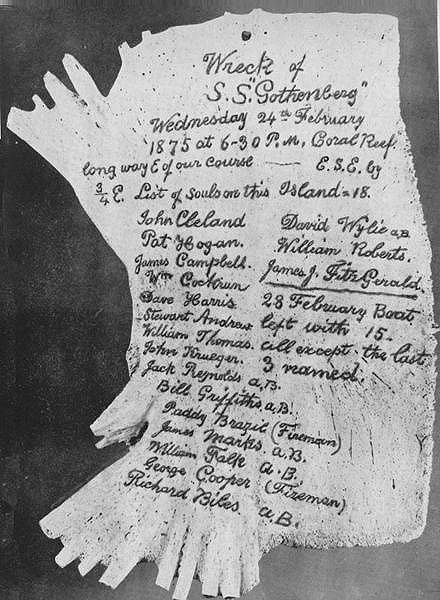 Wreck of
S.S. "Gothenberg"
Wednesday 24th February
1875 at 6-30 P.M, Coral Reef
long way E of our course — E.S.E. by
3/4 E. List of Souls on this Island = 18.
John Cleland
Pat Hogan.
James Campbell.
Wm Cockrun
Dave Harris
Stewart Andrew
William Thomas.
John Krueger.
Jack Reynolds a.B.
Bill Griffiths a.B.
Paddy Brazil (Fireman)
James Marks a.B.
William Falk a.B.
George Cooper (Fizeman)
Richard Biles a.B.
David Wylie a.B.
William Roberts.
James J. FitzGerald.
28 February Boat
left with 15.
all except the last
3 named.